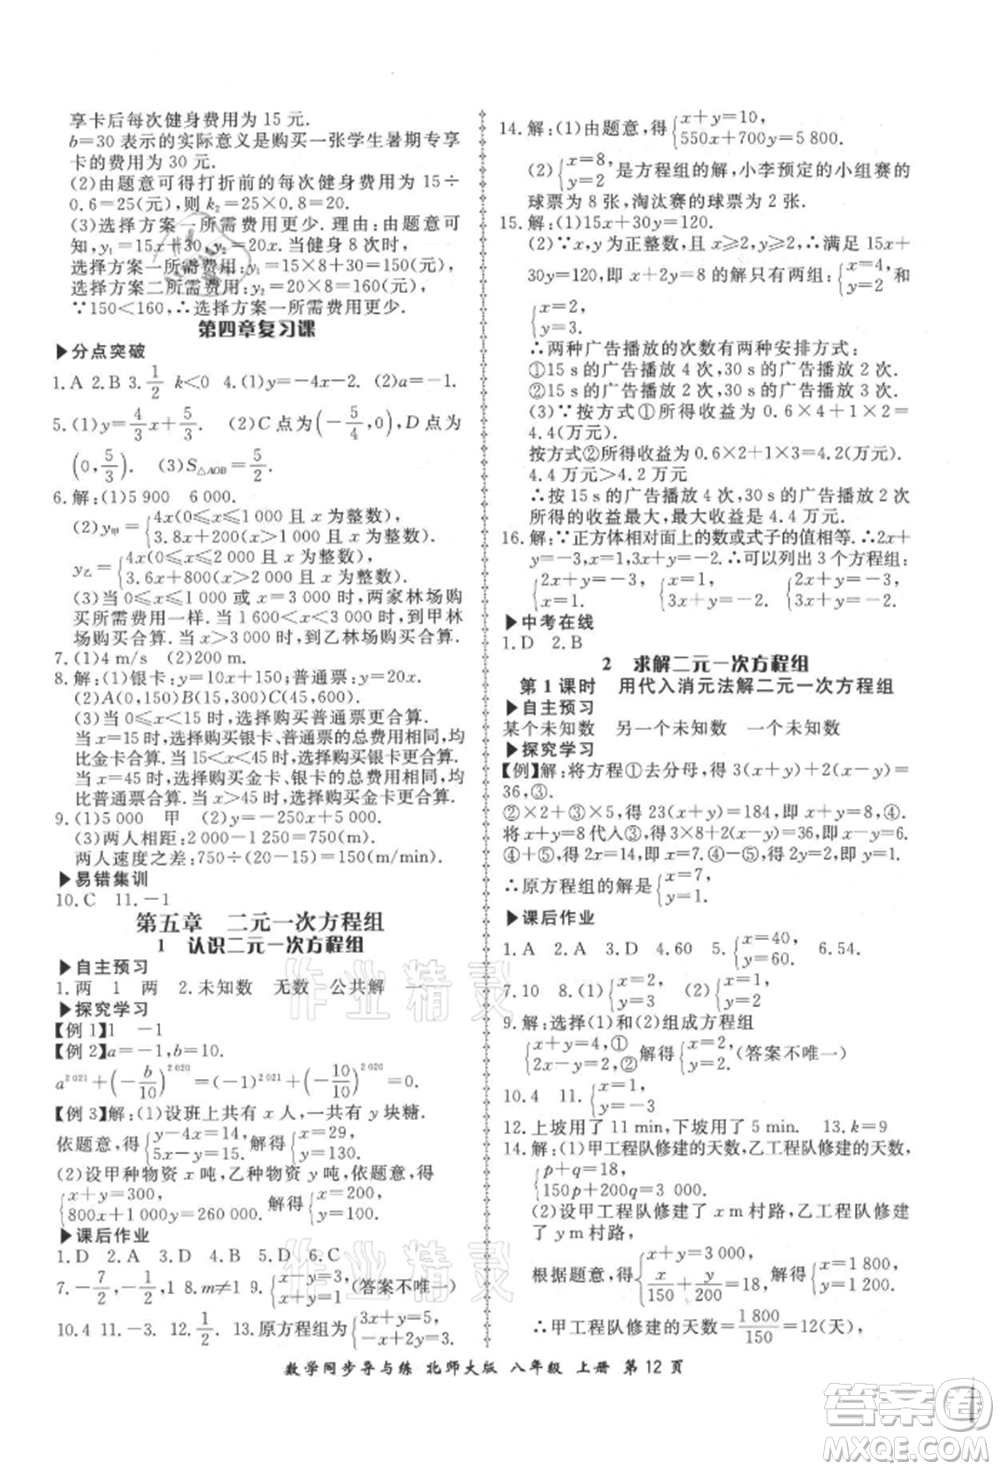 享卡后每次健身费用为 15 元.
b=30 表示的实际意义是购买一张学生暑期专享
卡的费用为 30 元.
(2)由题意可得打折前的每次健身费用为 15÷
0.6=25(元),则 k₂=25×0.8=20.
(3)选择方案一所需费用更少. 理由:由题意可
知,y₁=15x+30,y₂=20x. 当健身 8 次时,
选择方案一所需费用:y₁=15×8+30=150(元),
选择方案二所需费用:y₂=20×8=160(元),
∵150<160,∴选择方案一所需费用更少.
第四章复习课
▶分点突破
1.A 2.B 3.1/2 k<0 4.(1)y=-4x-2. (2)a=-1.
5.(1)y=4/3x+5/3. (2)C 点为(-5/4,0),D 点为
(0,5/3). (3)S△AOB=5/2.
6.解:(1)5 900 6 000.
(2)y甲={4x(0≤x≤1 000 且 x 为整数),
3.8x+200(x>1 000 且 x 为整数);
y乙={4x(0≤x≤2 000 且 x 为整数),
3.6x+800(x>2 000 且 x 为整数).
(3)当 0≤x≤1 000 或 x=3 000 时,两家林场购
买所需费用一样. 当 1 600<x<3 000 时,到甲林
场购买合算. 当 x>3 000 时,到乙林场购买合算.
7.(1)4 m/s (2)200 m.
8.解:(1)银卡:y=10x+150;普通票:y=20x.
(2)A(0,150)B(15,300)C(45,600).
(3)当 0<x<15 时,选择购买普通票更合算.
当 x=15 时,选择购买银卡、普通票的总费用相同,均
比金卡合算. 当 15<x<45 时,选择购买银卡更合算.
当 x=45 时,选择购买金卡、银卡的总费用相同,均比
普通票合算. 当 x>45 时,选择购买金卡更合算.
9.(1)5 000 甲 (2)y=-250x+5 000.
(3)两人相距:2 000-1 250=750(m).
两人速度之差:750÷(20-15)=150(m/min).
▶易错集训
10.C 11.-1
第五章 二元一次方程组
1 认识二元一次方程组
▶自主预习
1.两 1 两 2.未知数 无数 公共解 一
▶探究学习
【例 1】1 -1
【例 2】a=-1,b=10.
a²⁰²¹+(-b/10)²⁰²⁰=(-1)²⁰²¹+(-10/10)²⁰²⁰=0.
【例 3】解:(1)设班上共有 x 人,一共有 y 块糖.
依题意,得{y-4x=14, 5x-y=15. 解得{x=29, y=130.
(2)设甲种物资 x 吨,乙种物资 y 吨,依题意,得
{x+y=300, 800x+1 000y=260 000. 解得{x=200, y=100.
▶课后作业
1.D 2.A 3.D 4.B 5.D 6.C
7.-7/2 -7/2 8.m≠1 9.{x-y=-1, x+y=3. (答案不唯一)
10.4 11.-3. 12.5/2. 13.原方程组为{3x+y=5, 4x-2y=0.
14.解:(1)由题意,得{x+y=10, 550x+700y=5 800.
(2){x=8, y=2 是方程组的解,小李预定的小组赛的
球票为 8 张,淘汰赛的球票为 2 张.
15.解:(1)15x+30y=120.
(2)∵x,y为正整数,且 x≥2,y≥2,∴满足 15x+
30y=120,即 x+2y=8 的解只有两组:{x=2, y=3 和
{x=4, y=2.
∴两种广告播放的次数有两种安排方式:
①15 s 的广告播放 4 次,30 s 的广告播放 2 次.
②15 s 的广告播放 2 次,30 s 的广告播放 3 次.
(3)∵按方式①所得收益为 0.6×4+1×2=
4.4(万元).
按方式②所得收益为0.6×2+1×3=4.2(万元).
4.4 万元>4.2 万元
∴按 15 s 的广告播放 4 次,30 s 的广告播放 2 次
所得的收益最大,最大收益是 4.4 万元.
16.解:∵正方体相对面上的数或式子的值相等.∴2x+
y=-3.x-y=1.x=-2.∴可以列出 3 个方程组:
{2x+y=-3, x-y=1. {2x+y=-3, x=-2. {x-y=1, x=-2.
▶中考在线
1.D 2.B
2 求解二元一次方程组
第 1 课时 用代入消元法解二元一次方程组
▶自主预习
某个未知数 另一个未知数 一个未知数
▶探究学习
【例】解:将方程①去分母,得 3(x+y)+2(x-y)=
36,③.
②×2+③×5,得 23(x+y)=184,即 x+y=8,④.
将 x+y=8代入③,得 3×8+2(x-y)=36,即 x-y=6,⑤.
④+⑤,得 2x=14,即 x=7. ④-⑤,得 2y=2,即 y=1.
∴原方程组的解是{x=7, y=1.
▶课后作业
1.A 2.A 3.D 4.60 5.{x=40, y=60. 6.54.
7.10 8.(1){x=5, y=2. (2){x=2, y=3.
9.解:选择(1)和(2)组成方程组
{x+y=4,① 2x-y=-1.② 解得{x=1, y=3. (答案不唯一)
10.4 11.{x=5, y=1.
12.上坡用了 11 min,下坡用了 5 min. 13.k=9
14.解:(1)甲工程队修建的天数,乙工程队修建的天数,
{p+q=18, 150p+200q=3 000.
(2)设甲工程队修建了 x m 村路,乙工程队修建了
y m 村路,
根据题意,得{x+y=3 000, x/150+y/200=18, 解得{x=1 800, y=1 200.
∴甲工程队修建的天数=1 800/150=12(天),
数学同步导与练 北师大版 八年级 上册 第 12 页
作业精灵
作业精灵
答案圈
MXQE.COM